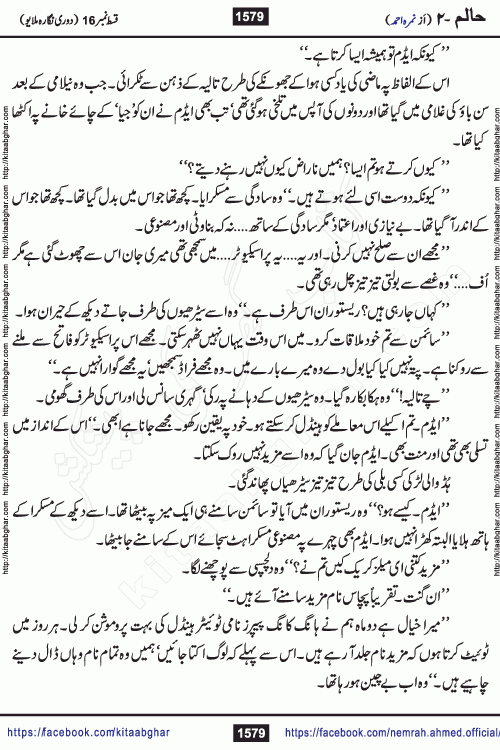 حالم -۲ (از نمرہ احمد)
1579
قسط نمبر 16 (دوری نگارہ ملایو)
’’ کیونکہ ایڈم تو ہمیشہ ایسا کرتا ہے۔‘‘
اس کے الفاظ پہ ماضی کی یاد کسی ہوا کے جھونکے کی طرح تالیہ کے ذہن سے ٹکرائی۔ جب وہ نیلامی کے بعد
سن باؤ کی غلامی میں گیا تھا اور دونوں کی آپس میں تلخی ہوگئی تھی‘ تب بھی ایڈم نے ان کو ’جیا‘ کے چائے خانے پہ اکٹھا
کیا تھا۔
’’ کیوں کرتے ہو تم ایسا؟ ہمیں ناراض کیوں نہیں رہنے دیتے؟‘‘
’’ کیونکہ دوست اسی لئے ہوتے ہیں۔‘‘ وہ سادگی سے مسکرایا۔ کچھ تھا جو اس میں بدل گیا تھا۔ کچھ تھا جو اس
کے اندر آ گیا تھا۔ بے نیازی اور اعتماد مگر سادگی کے ساتھ.... نہ کہ بناوٹی اور مصنوعی۔
’’ مجھے ان سے صلح نہیں کرنی۔ اور یہ.... یہ پراسیکیوٹر.... میں سمجھی تھی میری جان اس سے چھوٹ گئی ہے مگر
اُف....‘‘ وہ غصے سے بولتی تیز تیز چل رہی تھی۔
’’ کہاں جا رہی ہیں؟ ریستوران اس طرف ہے۔‘‘ وہ اسے سیڑھیوں کی طرف جاتے دیکھ کے حیران ہوا۔
’’ سائمن سے تم خود ملاقات کرو۔ میں اس وقت یہاں نہیں ٹھہر سکتی۔ مجھے اس پراسیکیوٹر کو فاتح سے ملنے
سے روکنا ہے۔ پتہ نہیں کیا کیا بول دے وہ میرے بارے میں۔ وہ مجھے فراڈ سمجھیں‘ یہ مجھے گوارا نہیں ہے۔‘‘
’’ چے تالیہ!‘‘ وہ ہکا بکا رہ گیا۔ وہ سیڑھیوں کے دہانے پہ رکی‘ گہری سانس لی اور اس کی طرف گھومی۔
’’ ایڈم۔ تم اکیلے اس معاملے کو ہینڈل کر سکتے ہو۔ خود پہ یقین رکھو۔ مجھے جانا ہے ابھی۔‘‘ اس کے انداز میں
تسلی بھی تھی اور منت بھی۔ ایڈم جان گیا کہ وہ اسے مزید نہیں روک سکتا۔
ہُڈ والی لڑکی کسی بلی کی طرح تیز تیز سیڑھیاں پھاند گئی۔
’’ ایڈم۔ کیسے ہو؟‘‘ وہ ریستوران میں آیا تو سائمن سامنے ہی ایک میز پہ بیٹھا تھا۔ اسے دیکھ کے مسکرا کے
ہاتھ ہلایا البتہ کھڑا نہیں ہوا۔ ایڈم بھی چہرے پہ مصنوعی مسکراہٹ سجائے اس کے سامنے جا بیٹھا۔
’’ مزید کتنی ای میلز کریک کیں تم نے؟‘‘ وہ دلچسپی سے پوچھنے لگا۔
’’ ان گنت۔ تقریباً پچاس نام مزید سامنے آئے ہیں۔‘‘
’’ میرا خیال ہے دو ماہ ہم نے ہانگ کانگ پیپرز نامی ٹوئیٹر ہینڈل کی بہت پروموشن کر لی۔ ہر روز میں
ٹوئیٹ کرتا ہوں کہ مزید نام جلد آ رہے ہیں۔ اس سے پہلے کہ لوگ اکتا جائیں‘ ہمیں وہ تمام نام وہاں ڈال دینے
چاہیے ہیں۔‘‘ وہ اب بے چین ہو رہا تھا۔
https://facebook.com/kitaabghar
1579
https://facebook.com/nemrah.ahmed.official/
http://kitaabghar.com http://kitaabghar.com http://kitaabghar.com http://kitaabghar.com
http://kitaabghar.com http://kitaabghar.com http://kitaabghar.com http://kitaabghar.com